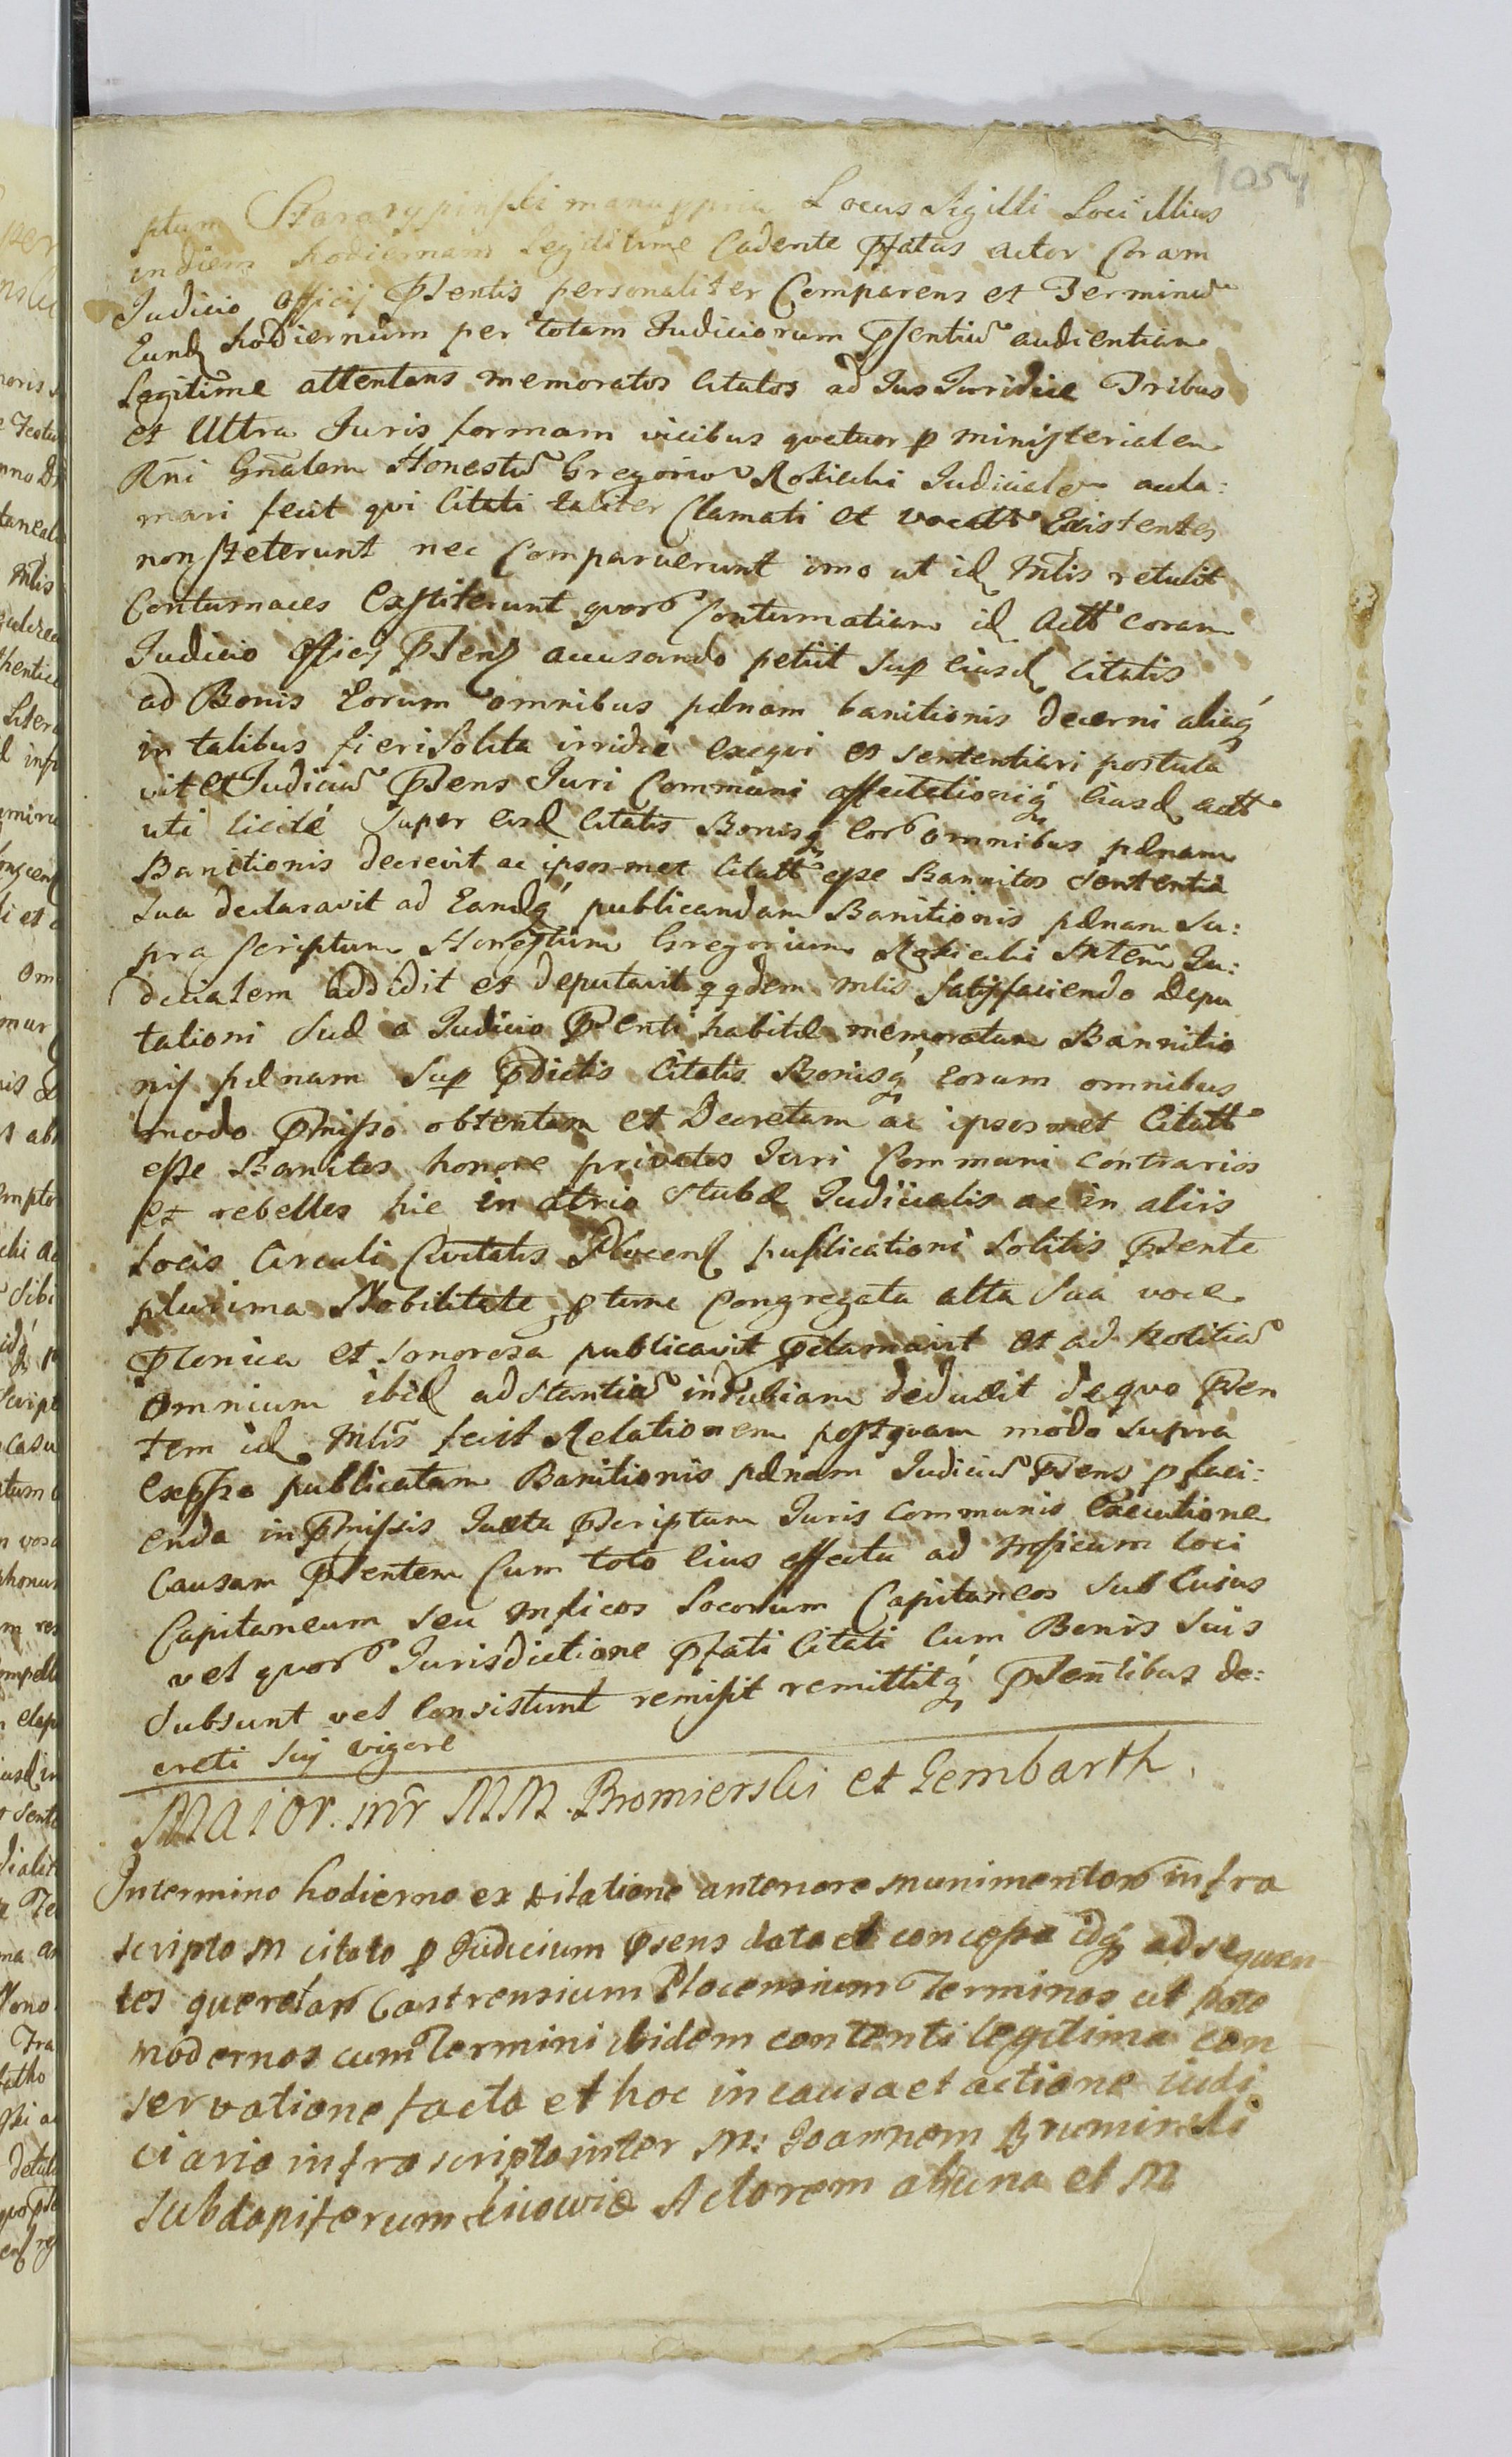 1054
ptum manu ppria Locus Sigilli Loci illius
in diem hodiernam legitime Cadente Pfatus actor Coram
Judicio Officij Psentis personaliter Comparens et Terminũ
Eund hodiernum per totam Judiciorum Psentiũ audientiam
Legitime attentans memoratos Citatos ad Jus Juridice Tribus
et Ultra Juris formam vicibus quatuor p ministerialem
Rñi Gñalem Honestũ Gregoriũ Rokicki Judicialr accla:
mari fecit qui Citati taliter Clamati et vocati Existentes
non steterunt nec Comparuerunt imo ut id Mtlis retulit
Contumaces Exstiterunt quor Contumatiam id Actt coram
Judicio Officij Psens accusando petiit Sup eiusd Citatis
ad Bonis Eorum omnibus pænam banitionis decerni aliaq
in talibus fieri Solita irridie exequi et sententiari postula
vit et Judiciũ Psens Juri Communi affectationiq eiusd actt
uti licité Super eisd Citatis Bonisq eor omnibus pænam
Banitionis decrevit ac ipsos met Citatt esse Bannitos Sententia
Sua declaravit ad Eandq publicandam Banitionis pænam Su:
pra scriptum Honestum Gregorium Rokicki Mtlem Ju:
dicialem addidit et deputavit qqdem Mtlis satisfaciendo Depu
tationi Suæ a Judicio Psenti habitæ memoratam Bannitio
nis pænam Sup Pdictis Citatis Bonisq eorum omnibus
modo Pmisso obtentam et Decretam ac ipsos met Citatt
esse Banitos honore privatos Juri Communi contrarios
et rebelles hic in atrio Stubæ Judicialis ac in aliis
Locis Circuli Civitatis Plocens publicationi Solitis Psente
plurima Nobilitate p tunc Congregata alta Sua voce
Plonica et Sonorosa publicavit Pclamavit et ad Notitiã
Omnium ibid adstantiũ indubiam deduxit de quo Psen
tem id Mtlis fecit Relationem postquam modo supra
Expsso publicatam Banitionis pænam Judiciũ Psens p faci:
enda in Pmissis Juxta Pscriptum Juris Communis Executione
Causam Psentem Cum toto Eius effectu ad Mficum loci
Capitaneum Seu Mficos Locorum Capitaneos Sub Cuius
vel quor Jurisdictione Pfati Citati Cum Bonis Suis
Subsunt vel Consistunt remisit remittitq Psentibus de:
creti Sui vigore
Maior. inr MM. Bromierski et Gembarth.
In termino hodierno ex citatione anteriore munimentor infra
scripto M citato p Judicium psens data et concessa idq ad sequen
tes querelar Castrensium Plocensium Terminos ut pote
modernos cum Termini ibidem contenti legitima con
servatione facta et hoc in causa et actione iudi
ciaria infra scripta inter M: Joannem Bromirski
Subdapiferum Actorem ab una et M